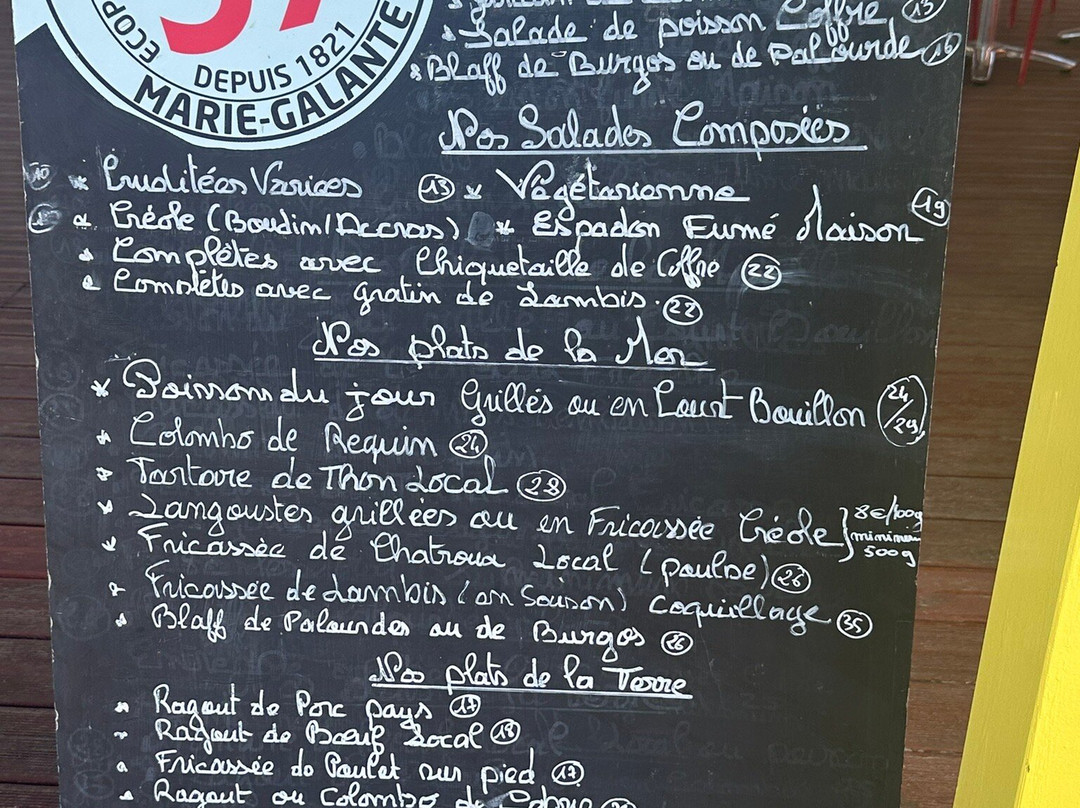 57
ECTOP
DEPUIS 1821
MARIE-GALANTE
13
* Salade de poisson Coffre
* Blaff de Burgos ou de Palourde 16
Nos Salades Composées
10 * Cruditées Variees 13 * Végétarienne
* Créole (Boudin/Accras) * Espadon Fumé Maison 19
* Complètes avec Chiquetaille de Coffre 22
* Complètes avec gratin de Lambis 22
Nos plats de la Mer
* Poisson du jour Grillés ou en Court Bouillon 24/29
* Colombo de Requin 24
* Tartare de Thon Local 28
* Langoustes grillées ou en Fricassée Créole } 8€/100g minimum 500g
* Fricassée de Chatroux Local (poulpe) 26
* Fricassée de Lambis (en Saison) Coquillage 35
* Blaff de Palourdes ou de Burgos 26
Nos plats de la Terre
* Ragout de Porc pays 17
* Ragout de Bœuf Local 18
* Fricassée de Poulet sur pied 17
* Ragout ou Colombo de